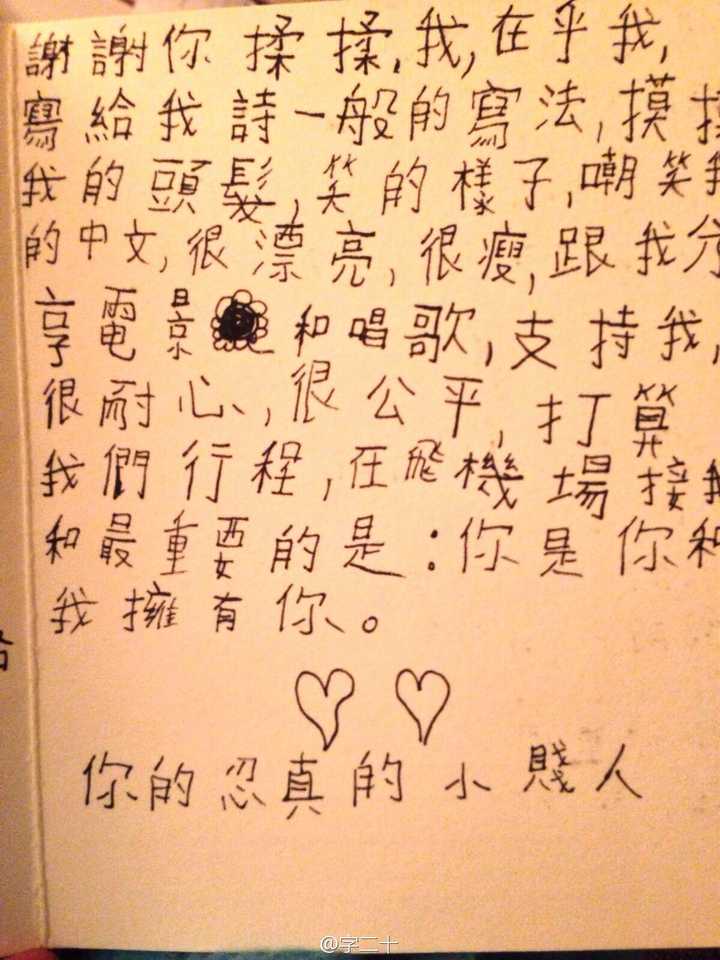 謝謝你揉揉,我,在乎我,
寫給我詩一般的寫法,摸摸
我的頭髮,笑的樣子,嘲笑我
的中文,很漂亮,很瘦,跟我分
享電影和唱歌,支持我,
很耐心,很公平,打算
我們行程,在飛機場接我
和最重要的是:你是你和
我擁有你。
你的忍真的小賤人
@字二十